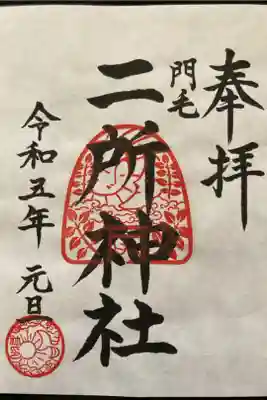 奉拝
門毛
二所神社
令和五年 元旦